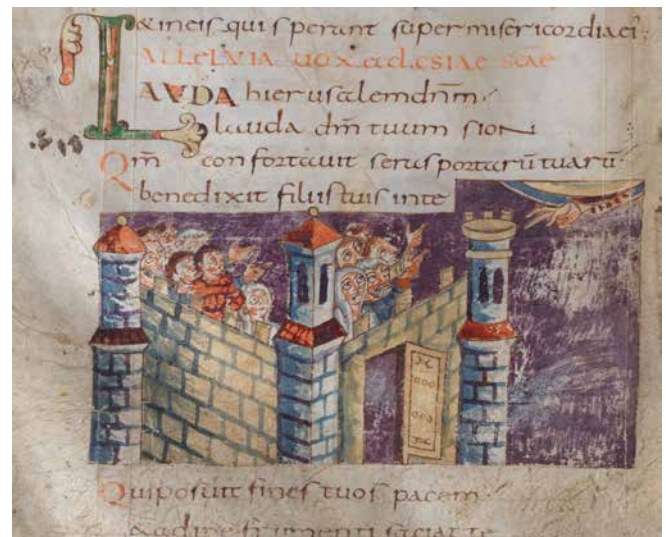 & ineis qui sperant super misericordia ei;
ALLELVIA uox ecclesiae scae
LAVDA hierusalem dnm
lauda dm tuum sion
Qm confortauit seras portarū tuarū
benedixit filiis tuis inte
Qui posuit fines tuos pacem
& adipe frumenti satiat te